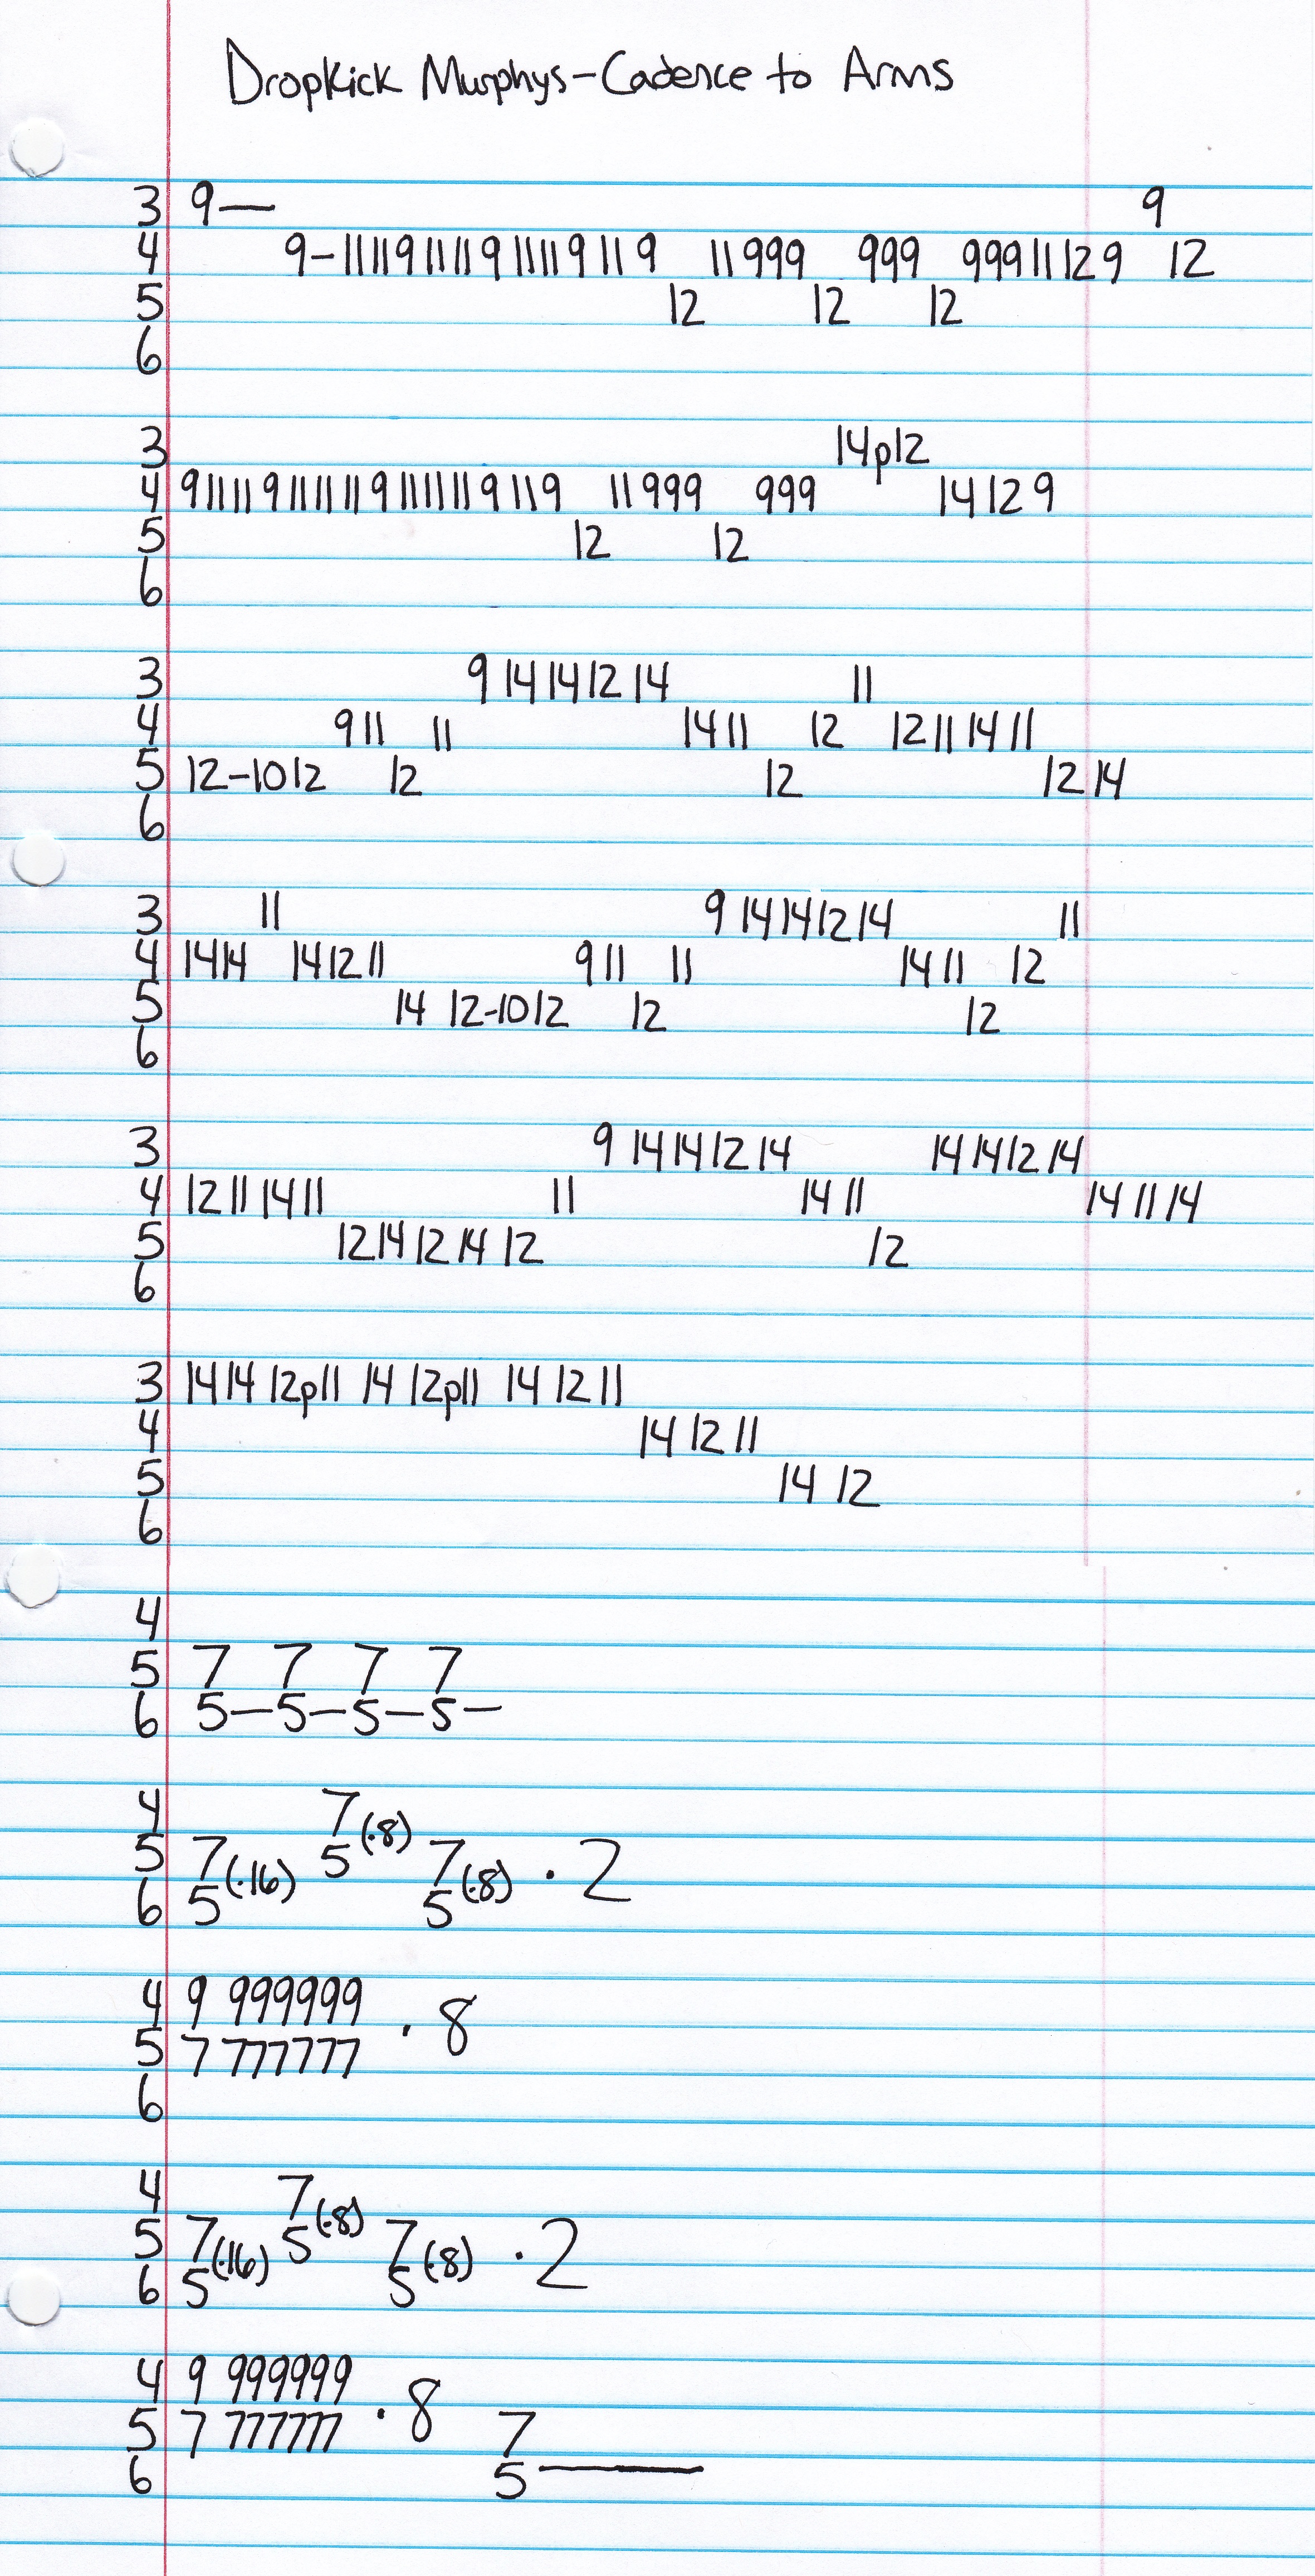 Dropkick Murphys-Cadence to Arms
3 9— 9
4 9-11 11 9 11 11 9 11 11 9 11 9 11 999 999 999 11 12 9 12
5 12 12 12
6
3 14p12
4 9 11 11 9 11 11 11 9 11 11 11 9 11 9 11 999 999 14 12 9
5 12 12
6
3 9 14 14 12 14 11
4 9 11 11 14 11 12 12 11 14 11
5 12-10 12 12 12 12 14
6
3 11 9 14 14 12 14 11
4 14 14 14 12 11 9 11 11 14 11 12
5 14 12-10 12 12 12
6
3 9 14 14 12 14 14 14 12 14
4 12 11 14 11 11 14 11 14 11 14
5 12 14 12 14 12 12
6
3 14 14 12p11 14 12p11 14 12 11
4 14 12 11
5 14 12
6
4
5 7 7 7 7
6 5—5—5—5—
4 7
5 7(·16) 5(·8) 7 · 2
6 5 5(·8)
4 9 999999 · 8
5 7 777777
6
4 7
5 7(·16) 5(·8) 7(·8) · 2
6 5 5
4 9 999999 · 8
5 7 777777 7
6 5——